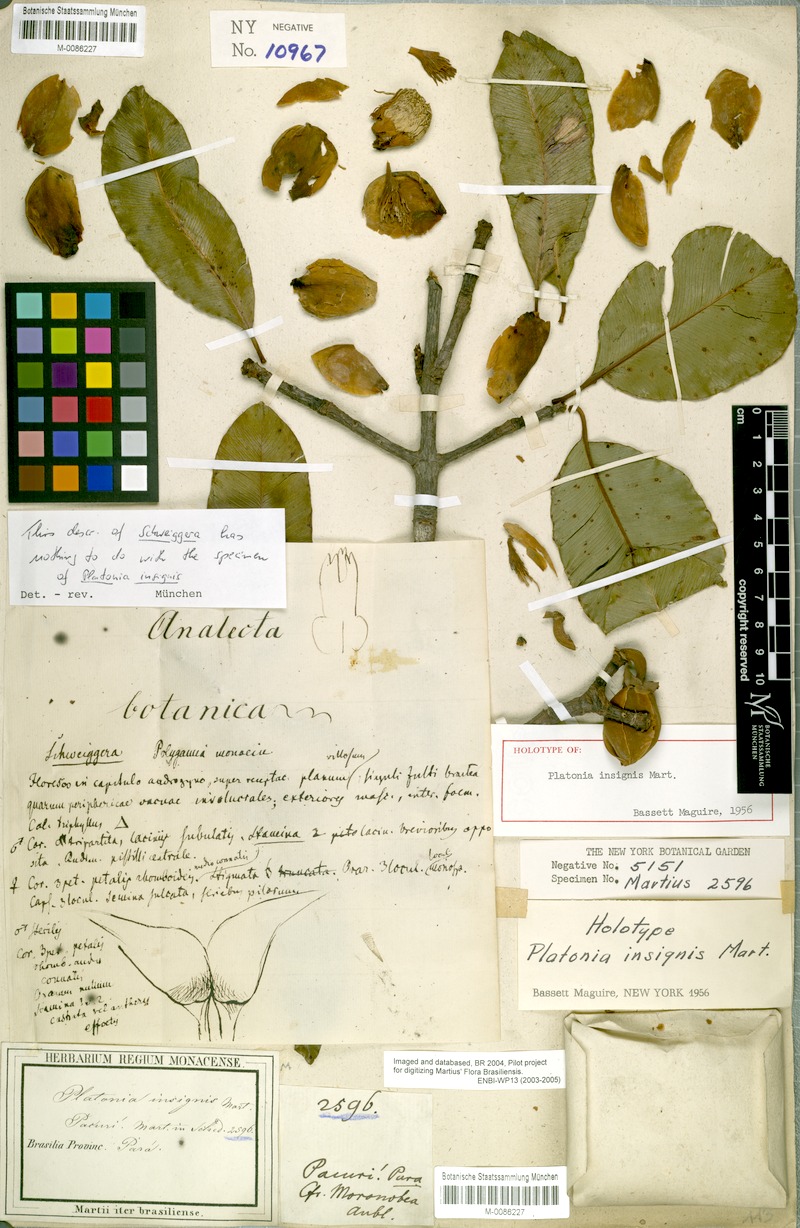 Botanische Staatssammlung München
M-0086227
NY NEGATIVE
No. 10967
This descr. of Schweiggera has
nothing to do with the specimen
of Platonia insignis
Det. - rev. München
Analecta
botanica
Schweiggera Polygamia monoecia
villosum
Flores in capitulo androgyno, super receptac. planum, singuli fulti bractea
quarum periphericae vacuae involucrales; exteriores masc., inter. foem.
Cal. triphyllus
♂ Cor. tripartita, laciniis subulatis. Stamina 2 peto lacin. brevioribus, oppo
sita. Rudim. pistilli centrale.
♀ Cor. 3pet. petalis rhomboideis. Stigmata 6 truncata. Ovar. 3locul.
Caps. 3locul. Semina sulcata,
♂ sterilis
Cor. 3pet. petalis
rhomb.
connatis
Ovarium nullum
Stamina
castrata vel antheris
effoetis
cm 0 1 2 3 4 5 6 7 8 9 10
copyright reserved
BOTANISCHE
STAATSSAMMLUNG
MÜNCHEN
HOLOTYPE OF:
Platonia insignis Mart.
Bassett Maguire, 1956
THE NEW YORK BOTANICAL GARDEN
Negative No. 5151
Specimen No. Martius 2596
Holotype
Platonia insignis Mart.
Bassett Maguire, NEW YORK 1956
Imaged and databased, BR 2004, Pilot project
for digitizing Martius' Flora Brasiliensis.
ENBI-WP13 (2003-2005)
HERBARIUM REGIUM MONACENSE.
Platonia insignis Mart.
Pacuri. Mart. in Sched. 2596.
Brasilia Provinc. Pará.
Martii iter brasiliense.
2596.
Pacuri. Para
Cfr. Moronobea
Aubl.
Botanische Staatssammlung München
M-0086227